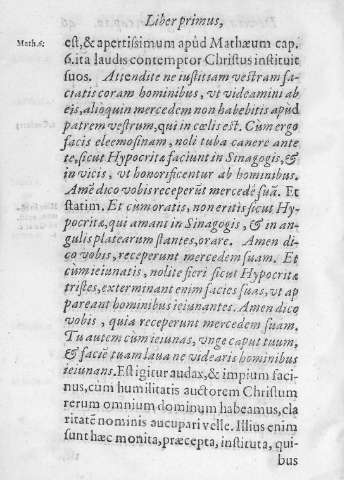 Liber primus,
Math.6:
est, & apertissimum apúd Mathæum cap.
6. ita laudis contemptor Christus instituit
suos. Attendite ne iustitiam vestram fa-
ciatis coram hominibus, vt videamini ab
eis, alioquin mercedem non habebitis apúd
patrem vestrum, qui in cœlis est. Cùm ergo
facis eleemosinam, noli tuba canere ante
te, sicut Hypocritæ faciunt in Sinagogis, &
in vicis, vt honorificentur ab hominibus.
Amē dico vobis receperūt mercedē suā. Et
statim. Et cùm oratis, non eritis sicut Hy-
pocritæ, qui amant in Sinagogis, & in an-
gulis platearum stantes, orare. Amen di-
co vobis, receperunt mercedem suam. Et
cùm ieiunatis, nolite fieri sicut Hypocritæ
tristes, exterminant enim facies suas, vt ap
pareant hominibus ieiunantes. Amen dico
vobis, quia receperunt mercedem suam.
Tu autem cùm ieiunas, vnge caput tuum,
& faciē tuam laua ne videaris hominibus
ieiunans. Est igitur audax, & impium faci-
nus, cùm humilitatis auctorem Christum
rerum omnium dominum habeamus, cla
ritatē nominis aucupari velle. Illius enim
sunt hæc monita, præcepta, instituta, qui-
bus